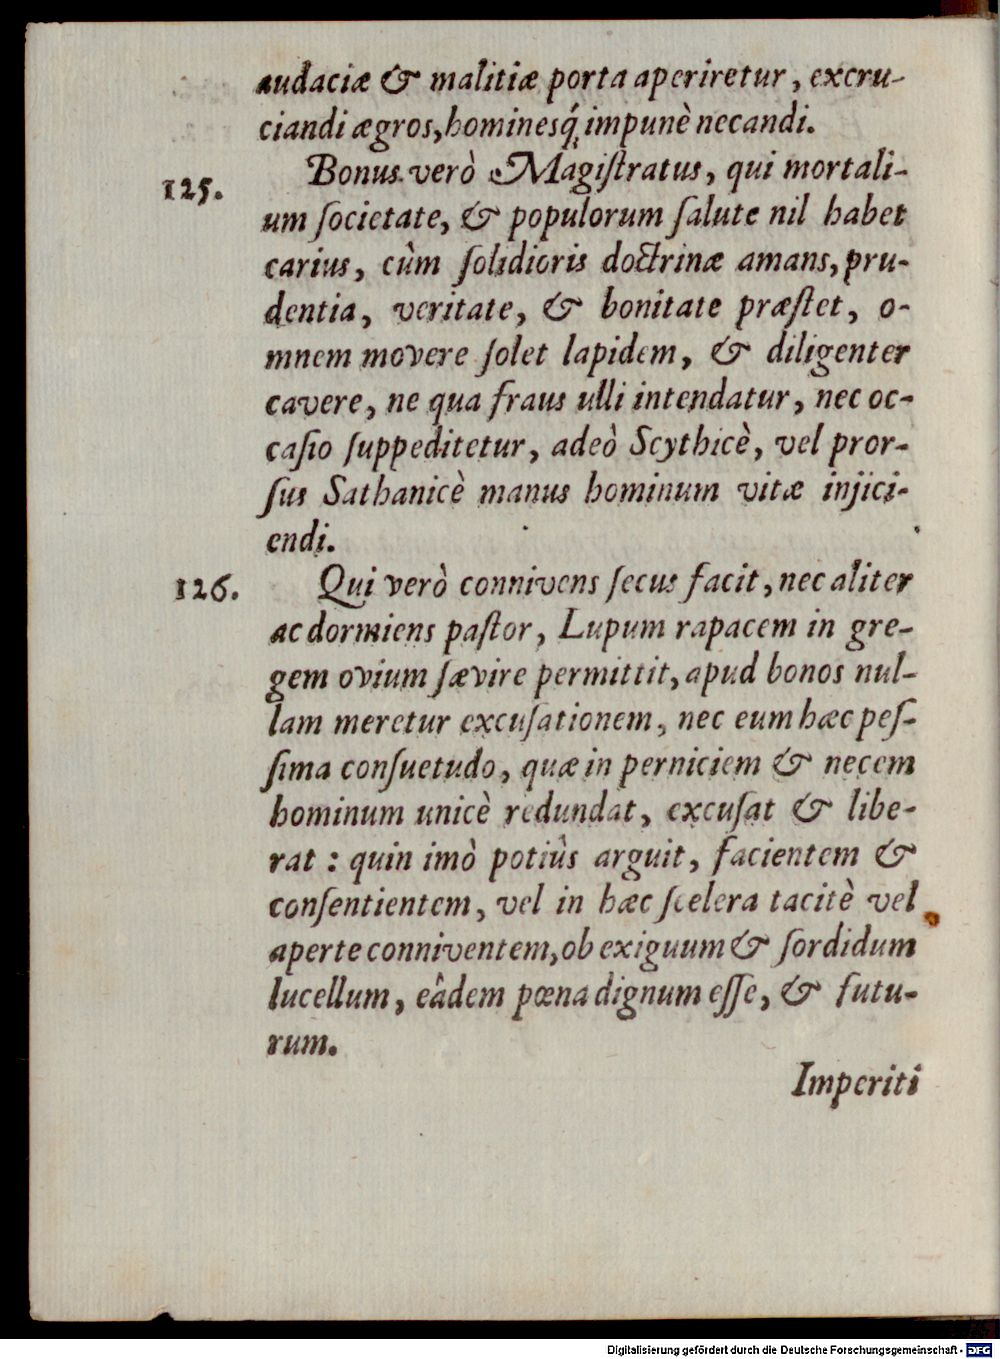 audaciæ & malitiæ porta aperiretur, excru-
ciandi ægros, hominesq́; impunè necandi.
125. Bonus verò Magiſtratus, qui mortali-
um ſocietate, & populorum ſalute nil habet
carius, cùm ſolidioris doctrinæ amans, pru-
dentia, veritate, & bonitate præſtet, o-
mnem movere ſolet lapidem, & diligenter
cavere, ne qua fraus ulli intendatur, nec oc-
caſio ſuppeditetur, adeò Scythicè, vel pror-
ſus Sathanicè manus hominum vitæ injici-
endi.
126. Qui verò connivens ſecus facit, nec aliter
ac dormiens paſtor, Lupum rapacem in gre-
gem ovium ſævire permittit, apud bonos nul-
lam meretur excuſationem, nec eum hæc peſ-
ſima conſuetudo, quæ in perniciem & necem
hominum unicè redundat, excuſat & libe-
rat : quin imò potiùs arguit, facientem &
conſentientem, vel in hæc ſcelera tacitè vel
aperte conniventem, ob exiguum & ſordidum
lucellum, eâdem pœna dignum eſſe, & futu-
rum.
Imperiti
Digitalisierung gefördert durch die Deutsche Forschungsgemeinschaft - DFG